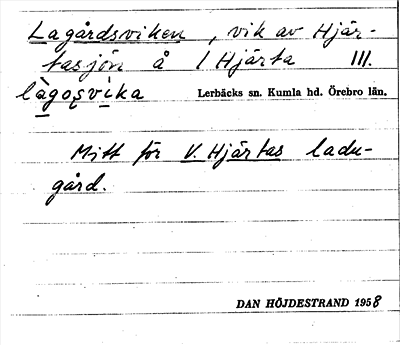 Lagårdsviken, vik av Hjär-
tasjön å 1 Hjärta III.
làgoṣvika Lerbäcks sn. Kumla hd. Örebro län.
Mitt för V. Hjärtas ladu-
gård.
DAN HÖJDESTRAND 1958